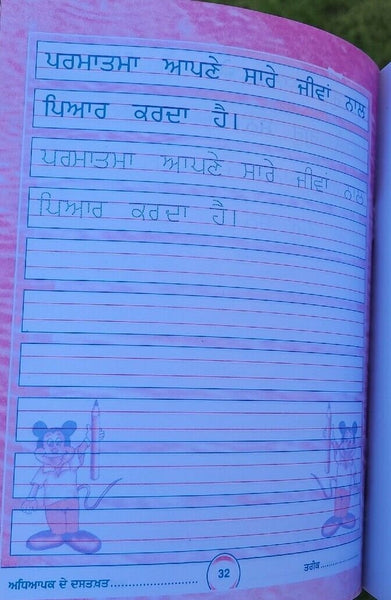 ਪਰਮਾਤਮਾ ਆਪਣੇ ਸਾਰੇ ਜੀਵਾਂ ਨਾਲ
ਪਿਆਰ ਕਰਦਾ ਹੈ।
ਪਰਮਾਤਮਾ ਆਪਣੇ ਸਾਰੇ ਜੀਵਾਂ ਨਾਲ
ਪਿਆਰ ਕਰਦਾ ਹੈ।
ਅਧਿਆਪਕ ਦੇ ਦਸਤਖ਼ਤ........................... 32 ਤਰੀਕ................